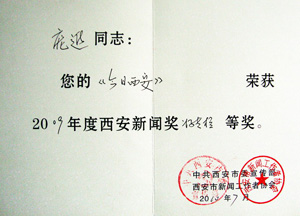 同志：
您的《今日西安》 荣获
2009年度西安新闻奖 等奖。
中共西安市委宣传部
西安市新闻工作者协会
2010年7月